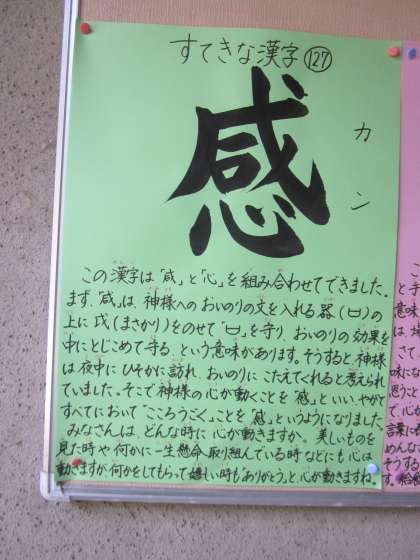 すてきな漢字 127
感
カン
この漢字は「咸」と「心」を組み合わせてできました。
まず、「咸」は、神様へのおいのりの文を入れる器(口)の
上に戉(まさかり)をのせて「口」を守り、おいのりの効果を
中にとじこめて守る、という意味があります。そうすると神様
は夜中にひそかに訪れ、おいのりにこたえてくれると考えられ
ていました。そこで神様の心が動くことを「感」といい、やがて
すべてにおいて「こころうごく」ことを「感」というようになりました。
みなさんは、どんな時に心が動きますか。美しいものを
見た時や何かに一生懸命取り組んでいる時などにも心は
動きますが、何かをしてもらって嬉しい時も「ありがとう」と心が動きますね。